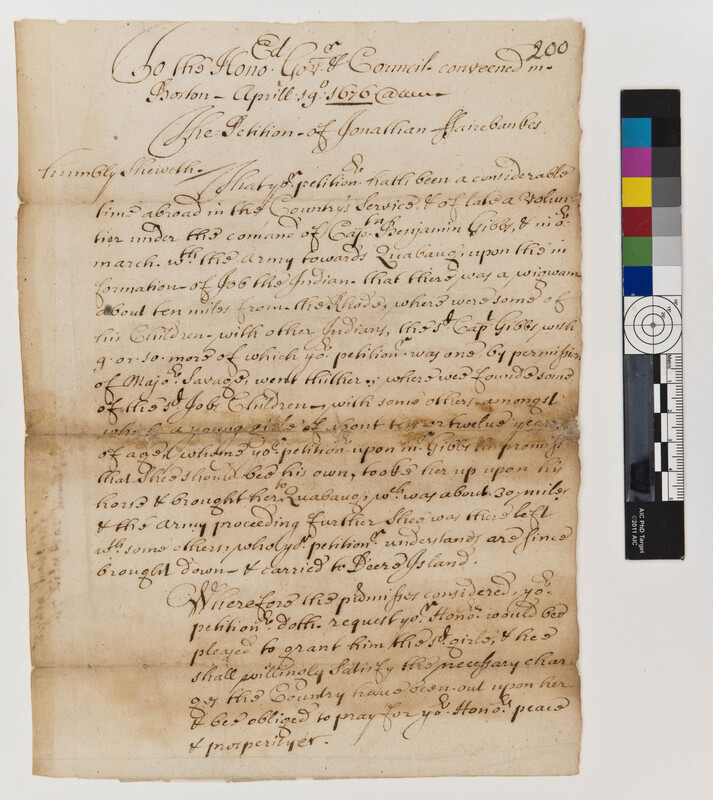 200
To the Hono:ed Gov:r & Council convened in
Boston Aprill 19:o 1676
The Petition of Jonathan Fairebankes
humbly Sheweth
That yo:r petition:r hath been a considerable
time abroad in the Country's Service, & of late a Volun
tier under the comand of Cap:tn Benjamin Gibbs, & in o:r
march w:th the Army towards Quabaug, upon the in
formation of Job the Indian that there was a wigwam
about ten miles from the Rhode, where were some of
his Children with other Indians, the s:d Cap:t Gibbs with
9 or 10 more of which yo:r petition:r was one, by permission
of Majo:r Savage, went thither, where wee founde some
of the s:d Jobs Children, with some others amongst
a young girle of about ten or twelve years
of age, whome yo:r petition:r upon m:r Gibbs his promise
that Shee should bee his own, tooke her up upon his
horse & brought her to Quabaug, w:ch was about 30 miles
& the Army proceeding further Shee was there left
w:th some others, who yo:r petition:r understands are since
brought down & carried to Deere Island.
Wherefore the premisses considered, yo:r
petition:r doth request yo:r Hono:rs would bee
pleased to grant him the s:d girle, & hee
shall willingly Satisfy the necessary char
ges the Country have been out upon her
& bee obliged to pray for yo:r Hono:rs peace
& prosperity